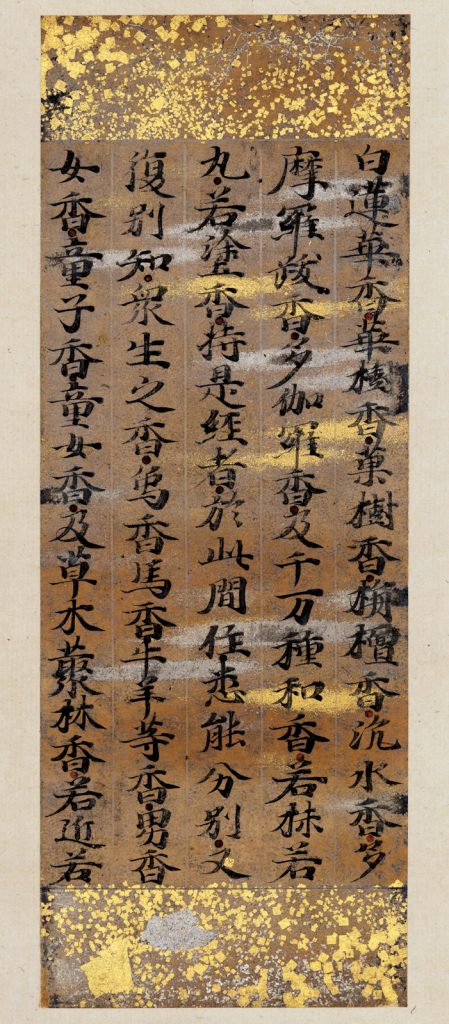 白蓮華香華樹香菓樹香栴檀香沉水香多
摩羅跋香多伽羅香及千万種和香若抹若
丸若塗香持是經者於此間住悉能分別又
復別知衆生之香象香馬香牛羊等香男香
女香童子香童女香及草木藂林香若近若